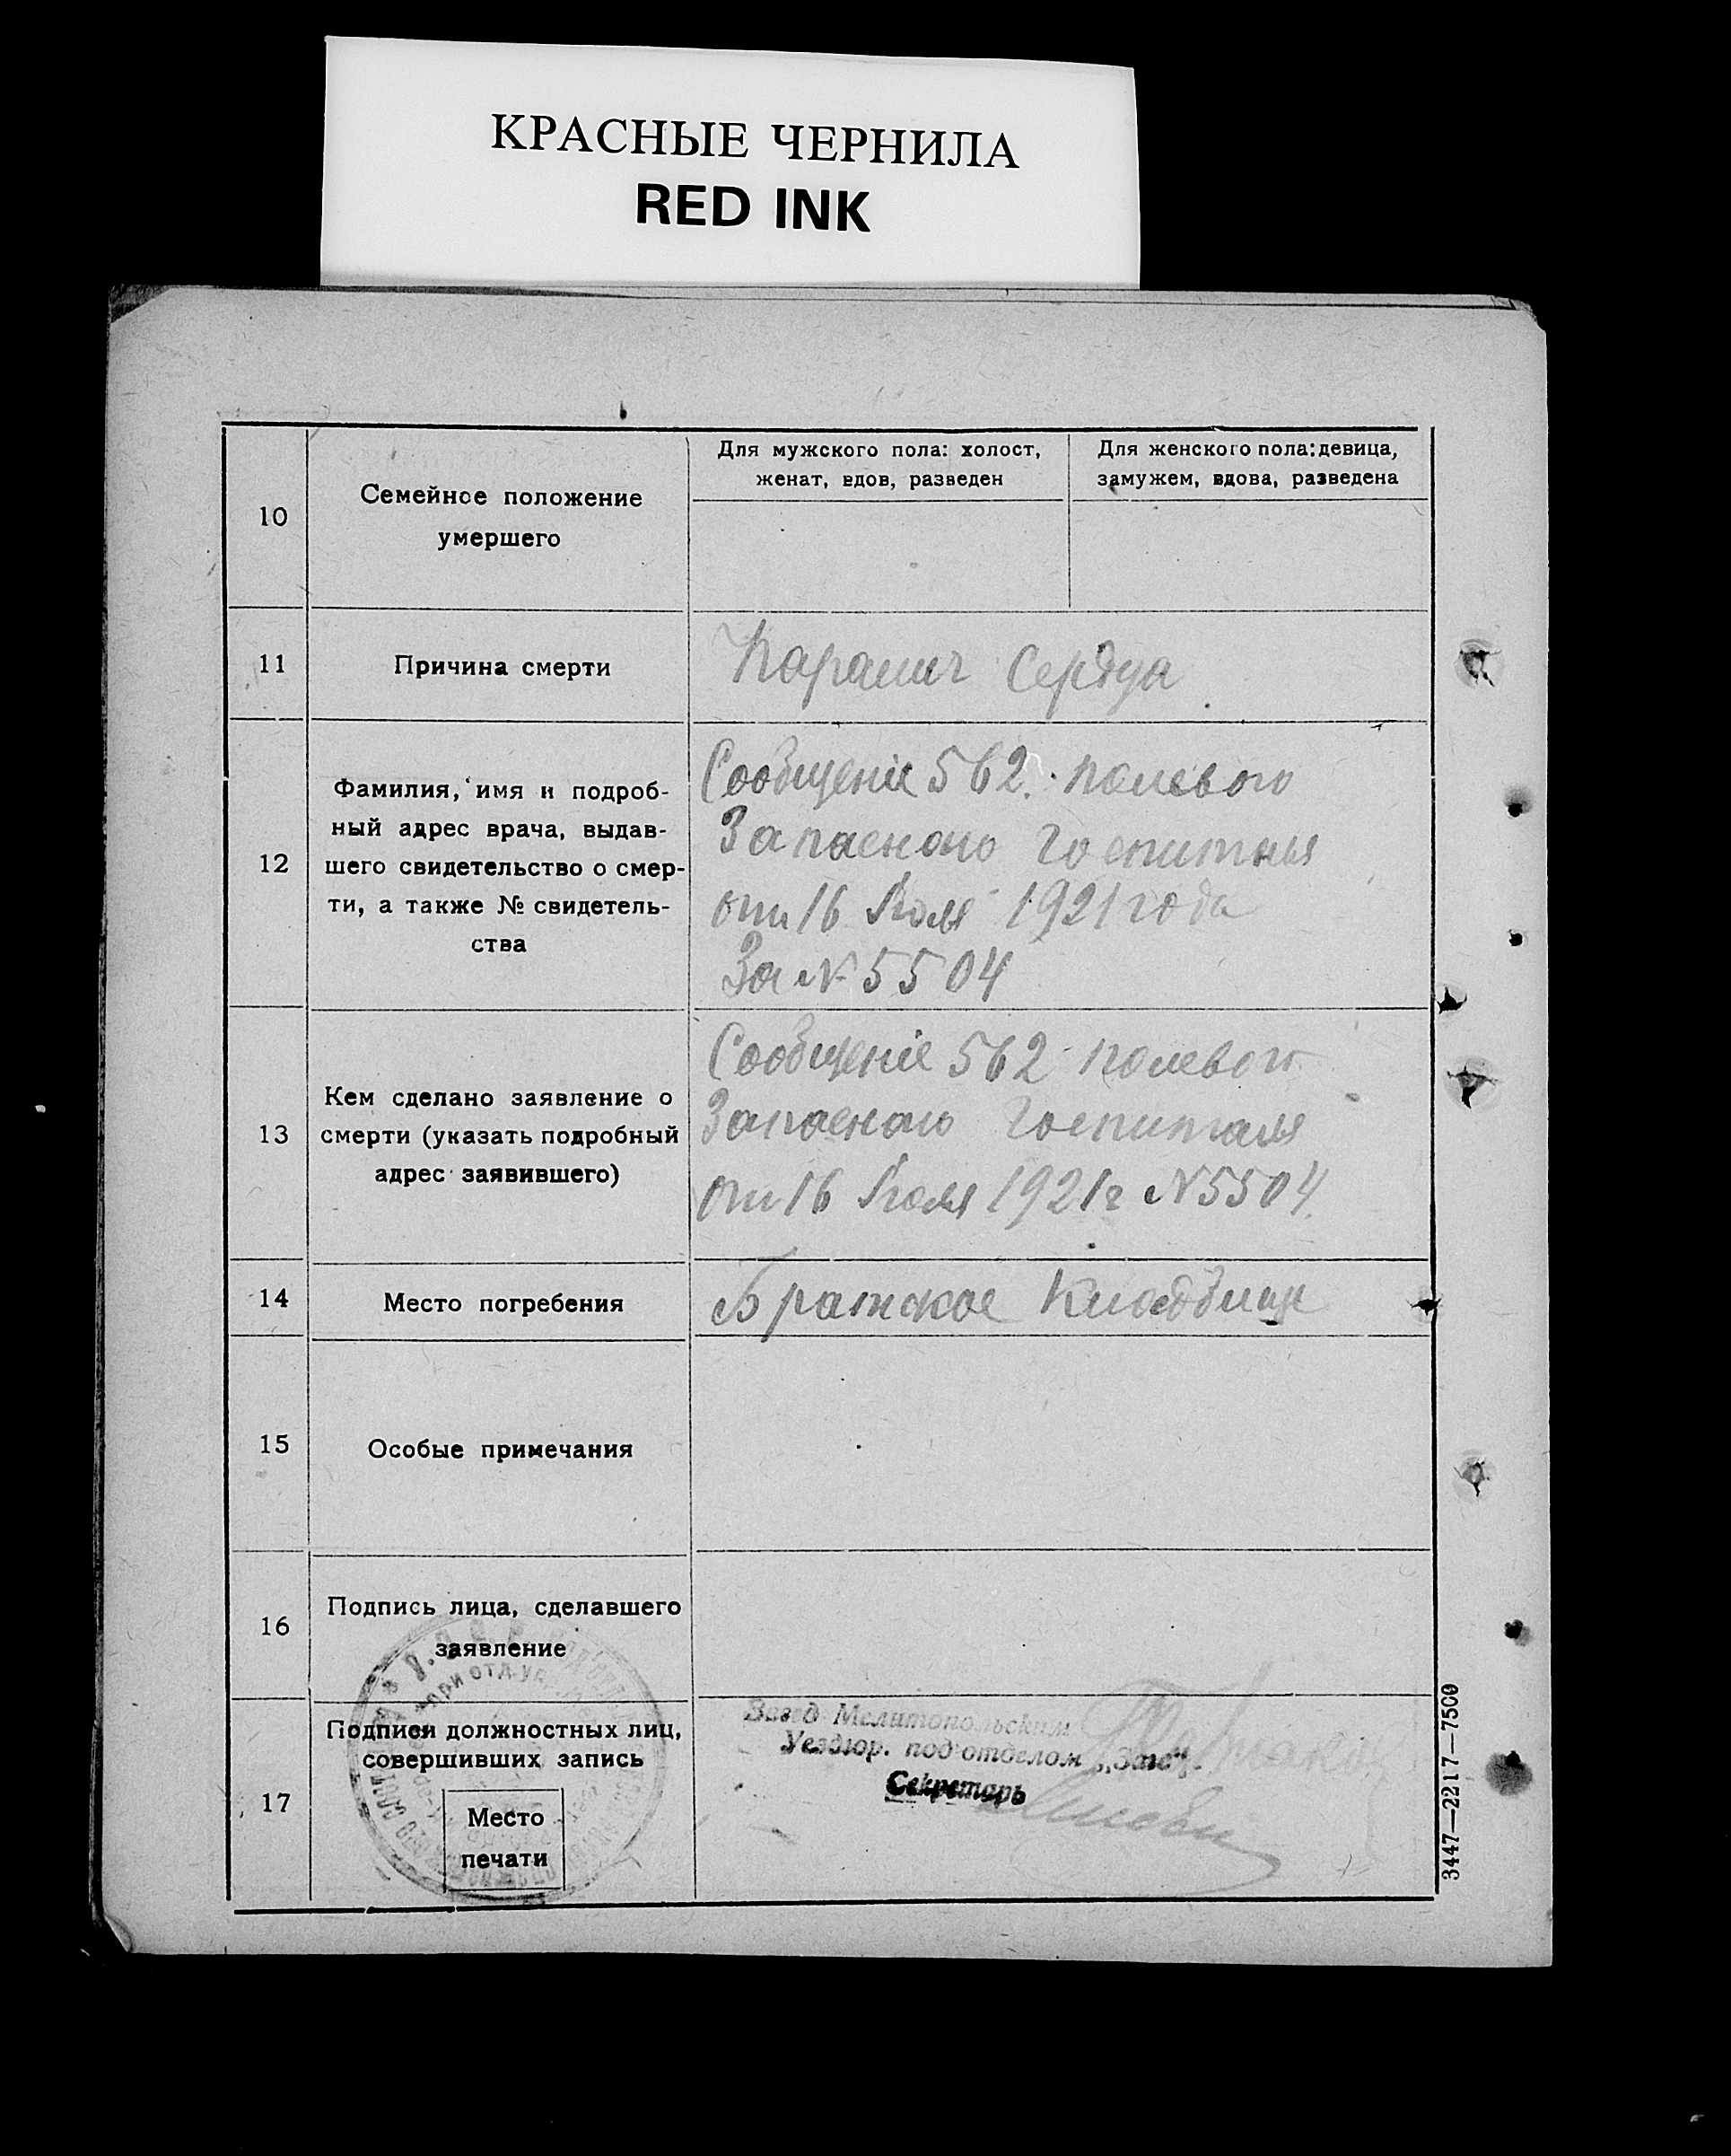 КРАСНЫЕ ЧЕРНИЛА
RED INK
10
Семейное положение
умершего
Для мужского пола: холост,
женат, вдов, разведен
Для женского пола: девица,
замужем, вдова, разведена
11
Причина смерти
Паралич Сердца
12
Фамилия, имя и подроб-
ный адрес врача, выдав-
шего свидетельство о смер-
ти, а также № свидетель-
ства
Сообщеніе 562. полевого
Запасного
от 16 Июля 1921 года
За № 5504
13
Кем сделано заявление о
смерти (указать подробный
адрес заявившего)
Сообщеніе 562 полевого
Запасного Госпиталя
от 16 Июля 1921 г № 5504
14
Место погребения
Братское Кладбище
15
Особые примечания
16
Подпись лица, сделавшего
заявление
17
Подписи должностных лиц,
совершивших запись
Место
печати
Завед Мелитопольским
Уездюр. под'отделом „Загс".
Секретарь
3447—2217—7500